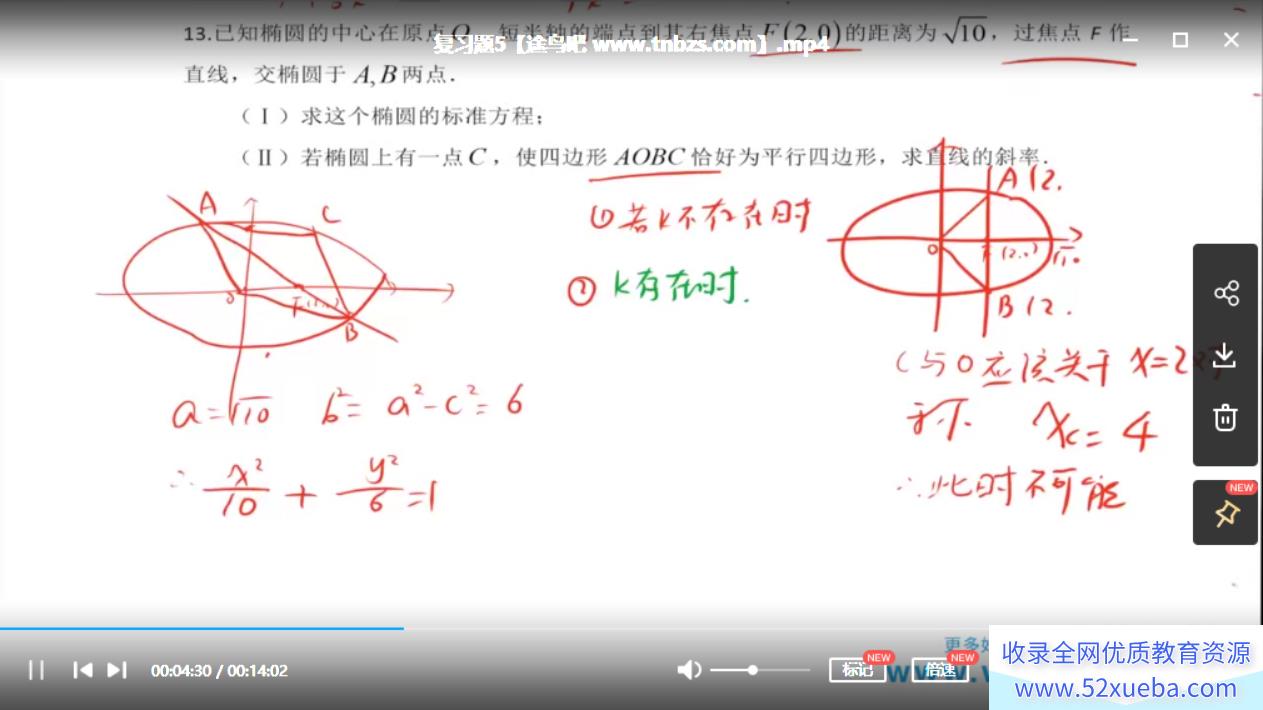 13.已知椭圆的中心在原点O，短半轴的端点到其右焦点F(2,0)的距离为√10，过焦点 F 作
复习题5【途鸟吧 www.tnbzs.com】.mp4
直线，交椭圆于 A,B两点．
（Ⅰ）求这个椭圆的标准方程；
（Ⅱ）若椭圆上有一点C，使四边形 AOBC 恰好为平行四边形，求直线的斜率．
A
C
F
B
① 若k不存在时
② k有存在时.
A(2.
O
F(2.0)
√10
B(2.
a=√10 b²= a²-c²= 6
∴ x²/10 + y²/6 =1
C与O应该关于 x=2对
称. xc= 4
∴此时不可能
NEW
00:04:30 / 00:14:02
标记 NEW
倍速 NEW
更多
www.
收录全网优质教育资源
www.52xueba.com